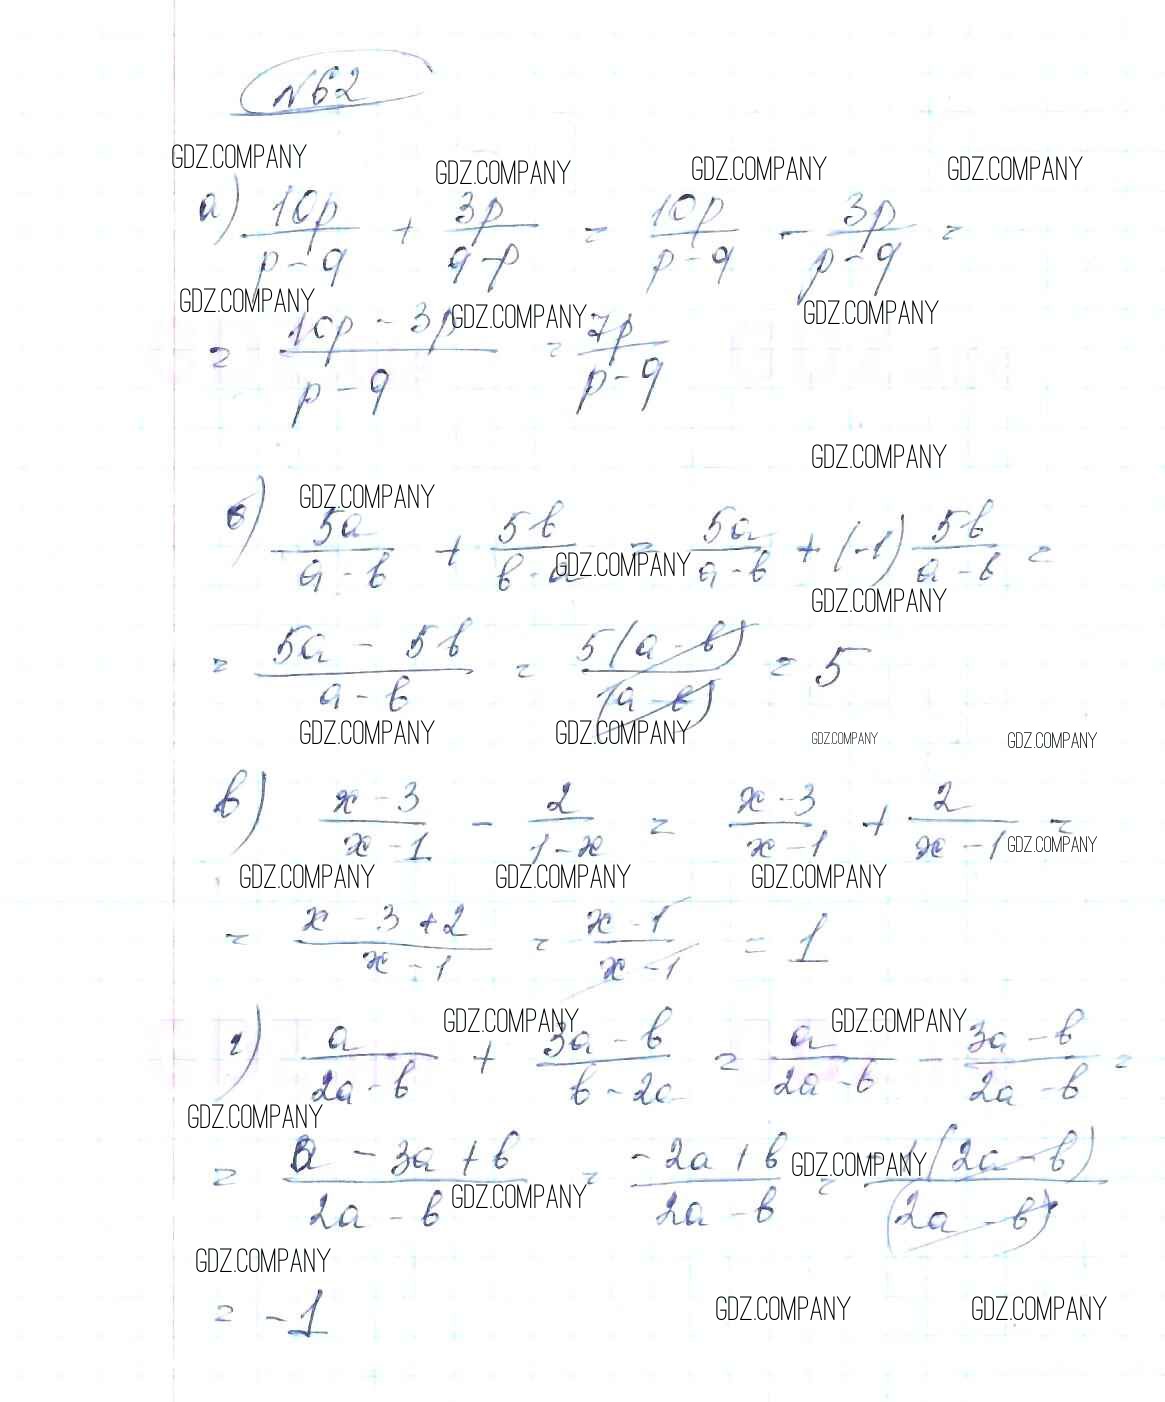 №62
GDZ.COMPANY GDZ.COMPANY GDZ.COMPANY GDZ.COMPANY
а) 10p/(p-q) + 3p/(q-p) = 10p/(p-q) - 3p/(p-q) =
GDZ.COMPANY GDZ.COMPANY GDZ.COMPANY
= (10p - 3p)/(p-q) = 7p/(p-q)
GDZ.COMPANY
GDZ.COMPANY
б) 5a/(a-b) + 5b/(b-a) = 5a/(a-b) + (-1) 5b/(a-b) =
GDZ.COMPANY
GDZ.COMPANY
= (5a - 5b)/(a-b) = 5(a-b)/(a-b) = 5
GDZ.COMPANY GDZ.COMPANY GDZ.COMPANY GDZ.COMPANY
в) (x-3)/(x-1) - 2/(1-x) = (x-3)/(x-1) + 2/(x-1) =
GDZ.COMPANY
GDZ.COMPANY GDZ.COMPANY GDZ.COMPANY
= (x-3+2)/(x-1) = (x-1)/(x-1) = 1
GDZ.COMPANY GDZ.COMPANY
г) a/(2a-b) + (3a-b)/(b-2a) = a/(2a-b) - (3a-b)/(2a-b) =
GDZ.COMPANY
= (a-3a+b)/(2a-b) = (-2a+b)/(2a-b) = -1(2a-b)/(2a-b)
GDZ.COMPANY GDZ.COMPANY
GDZ.COMPANY
= -1
GDZ.COMPANY GDZ.COMPANY